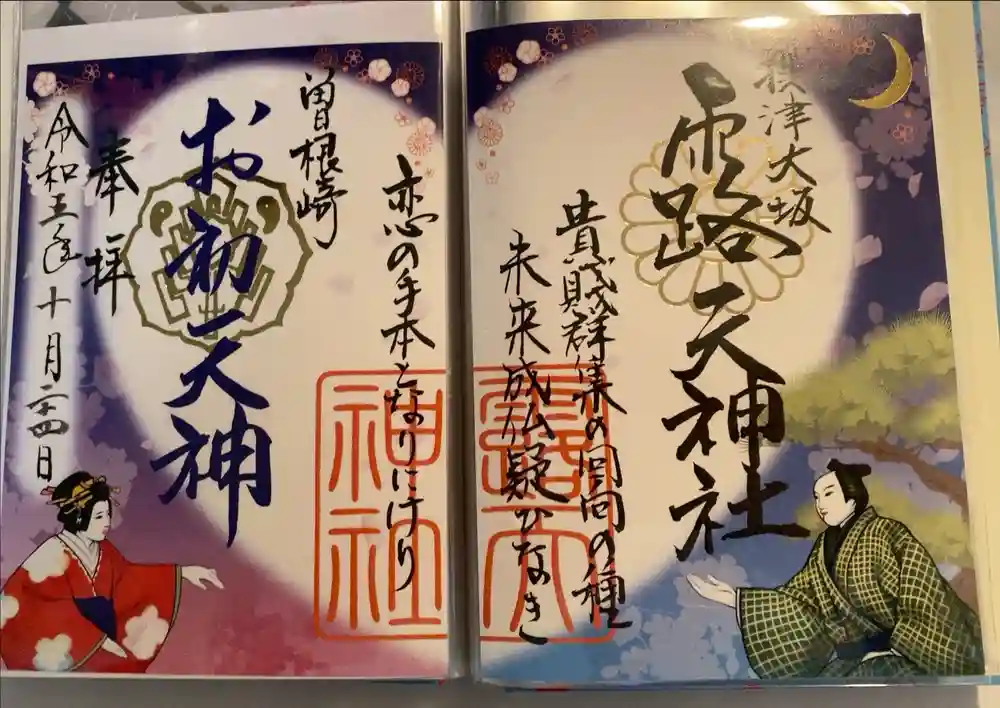 摂津大坂
露天神社
貴賎群集の回向の種
未来成仏疑ひなき
恋の手本となりにけり
曽根崎
お初天神
奉拝
令和五年十月二十四日
露天
神社